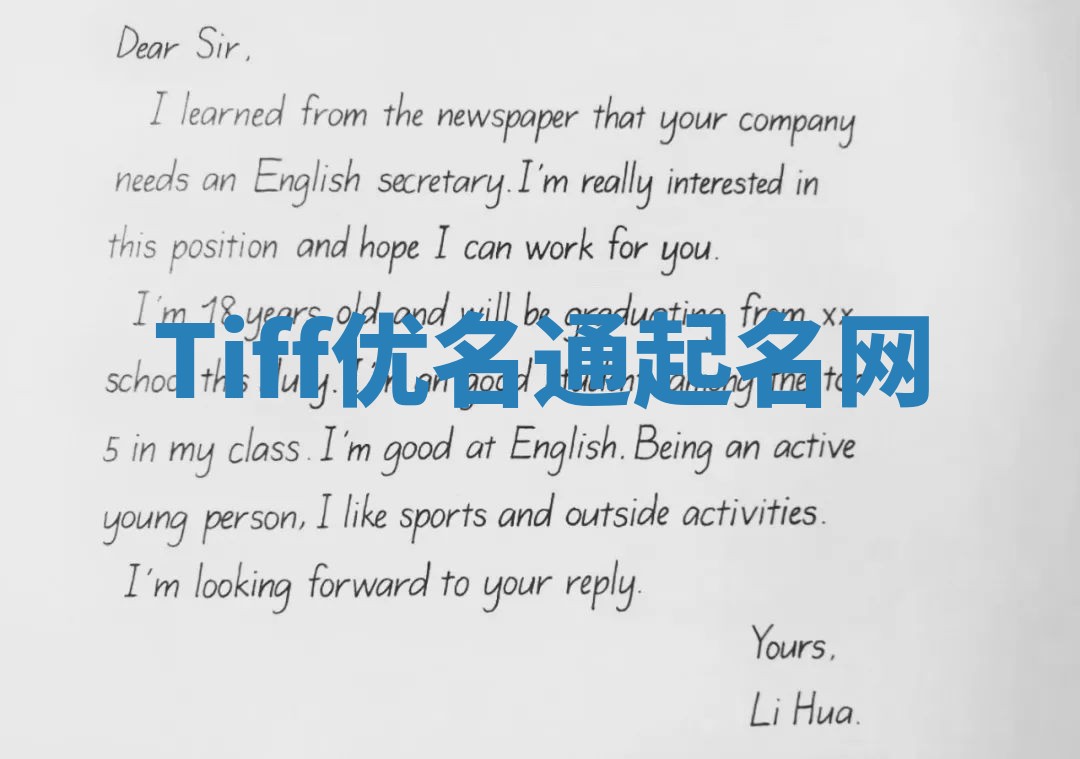 Dear Sir,
I learned from the newspaper that your company
needs an English secretary. I'm really interested in
this position and hope I can work for you.
I'm 18 years old and will be graduating from xx
Tiff优名通起名网
school this July. I'm an good student among the top
5 in my class. I'm good at English. Being an active
young person, I like sports and outside activities.
I'm looking forward to your reply.
Yours,
Li Hua.